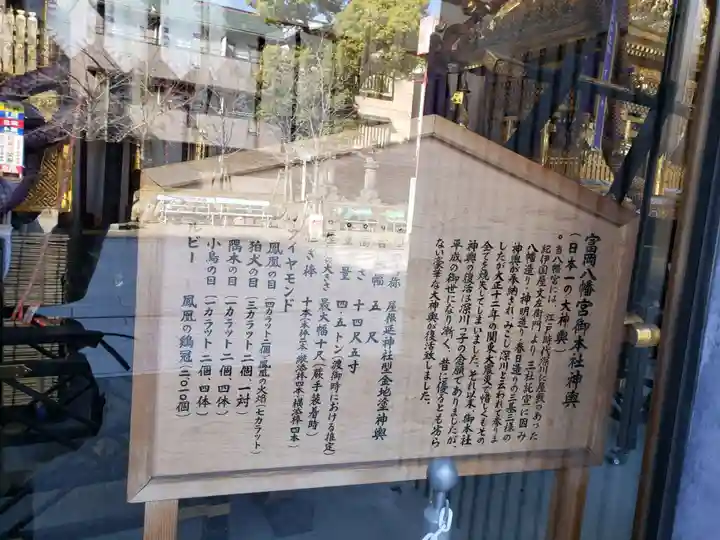 富岡八幡宮御本社神輿
(日本一の大神輿)
当八幡宮には、江戸時代深川に屋敷のあった
紀伊国屋文左衛門より、三社託宣に因み
八幡造り・神明造り・春日造りの三基三様の
神輿が奉納され、みこし深川と云われて参りま
したが大正十二年の関東大震災で惜しくもその
全てを焼失してしまいました。それ以来、御本社
神輿の復活は深川っ子の念願でありましたが、
平成の御世になり漸く、昔に優るとも劣ら
ない豪華な大神輿が復活致しました。
屋根延神社型金地塗神輿
幅 五尺
さ 十四尺五寸
量 四・五トン(渡御時における推定)
大きさ 最大幅十尺(蕨手装着時)
き棒
イヤモンド
鳳凰の目(四カラット二個・鳳凰の火焔(七カラット)
狛犬の目(三カラット二個一対)
隅木の目(一カラット二個四体)
小鳥の目(一カラット二個四体)
ビー 鳳凰の鶏冠(二〇一〇個)